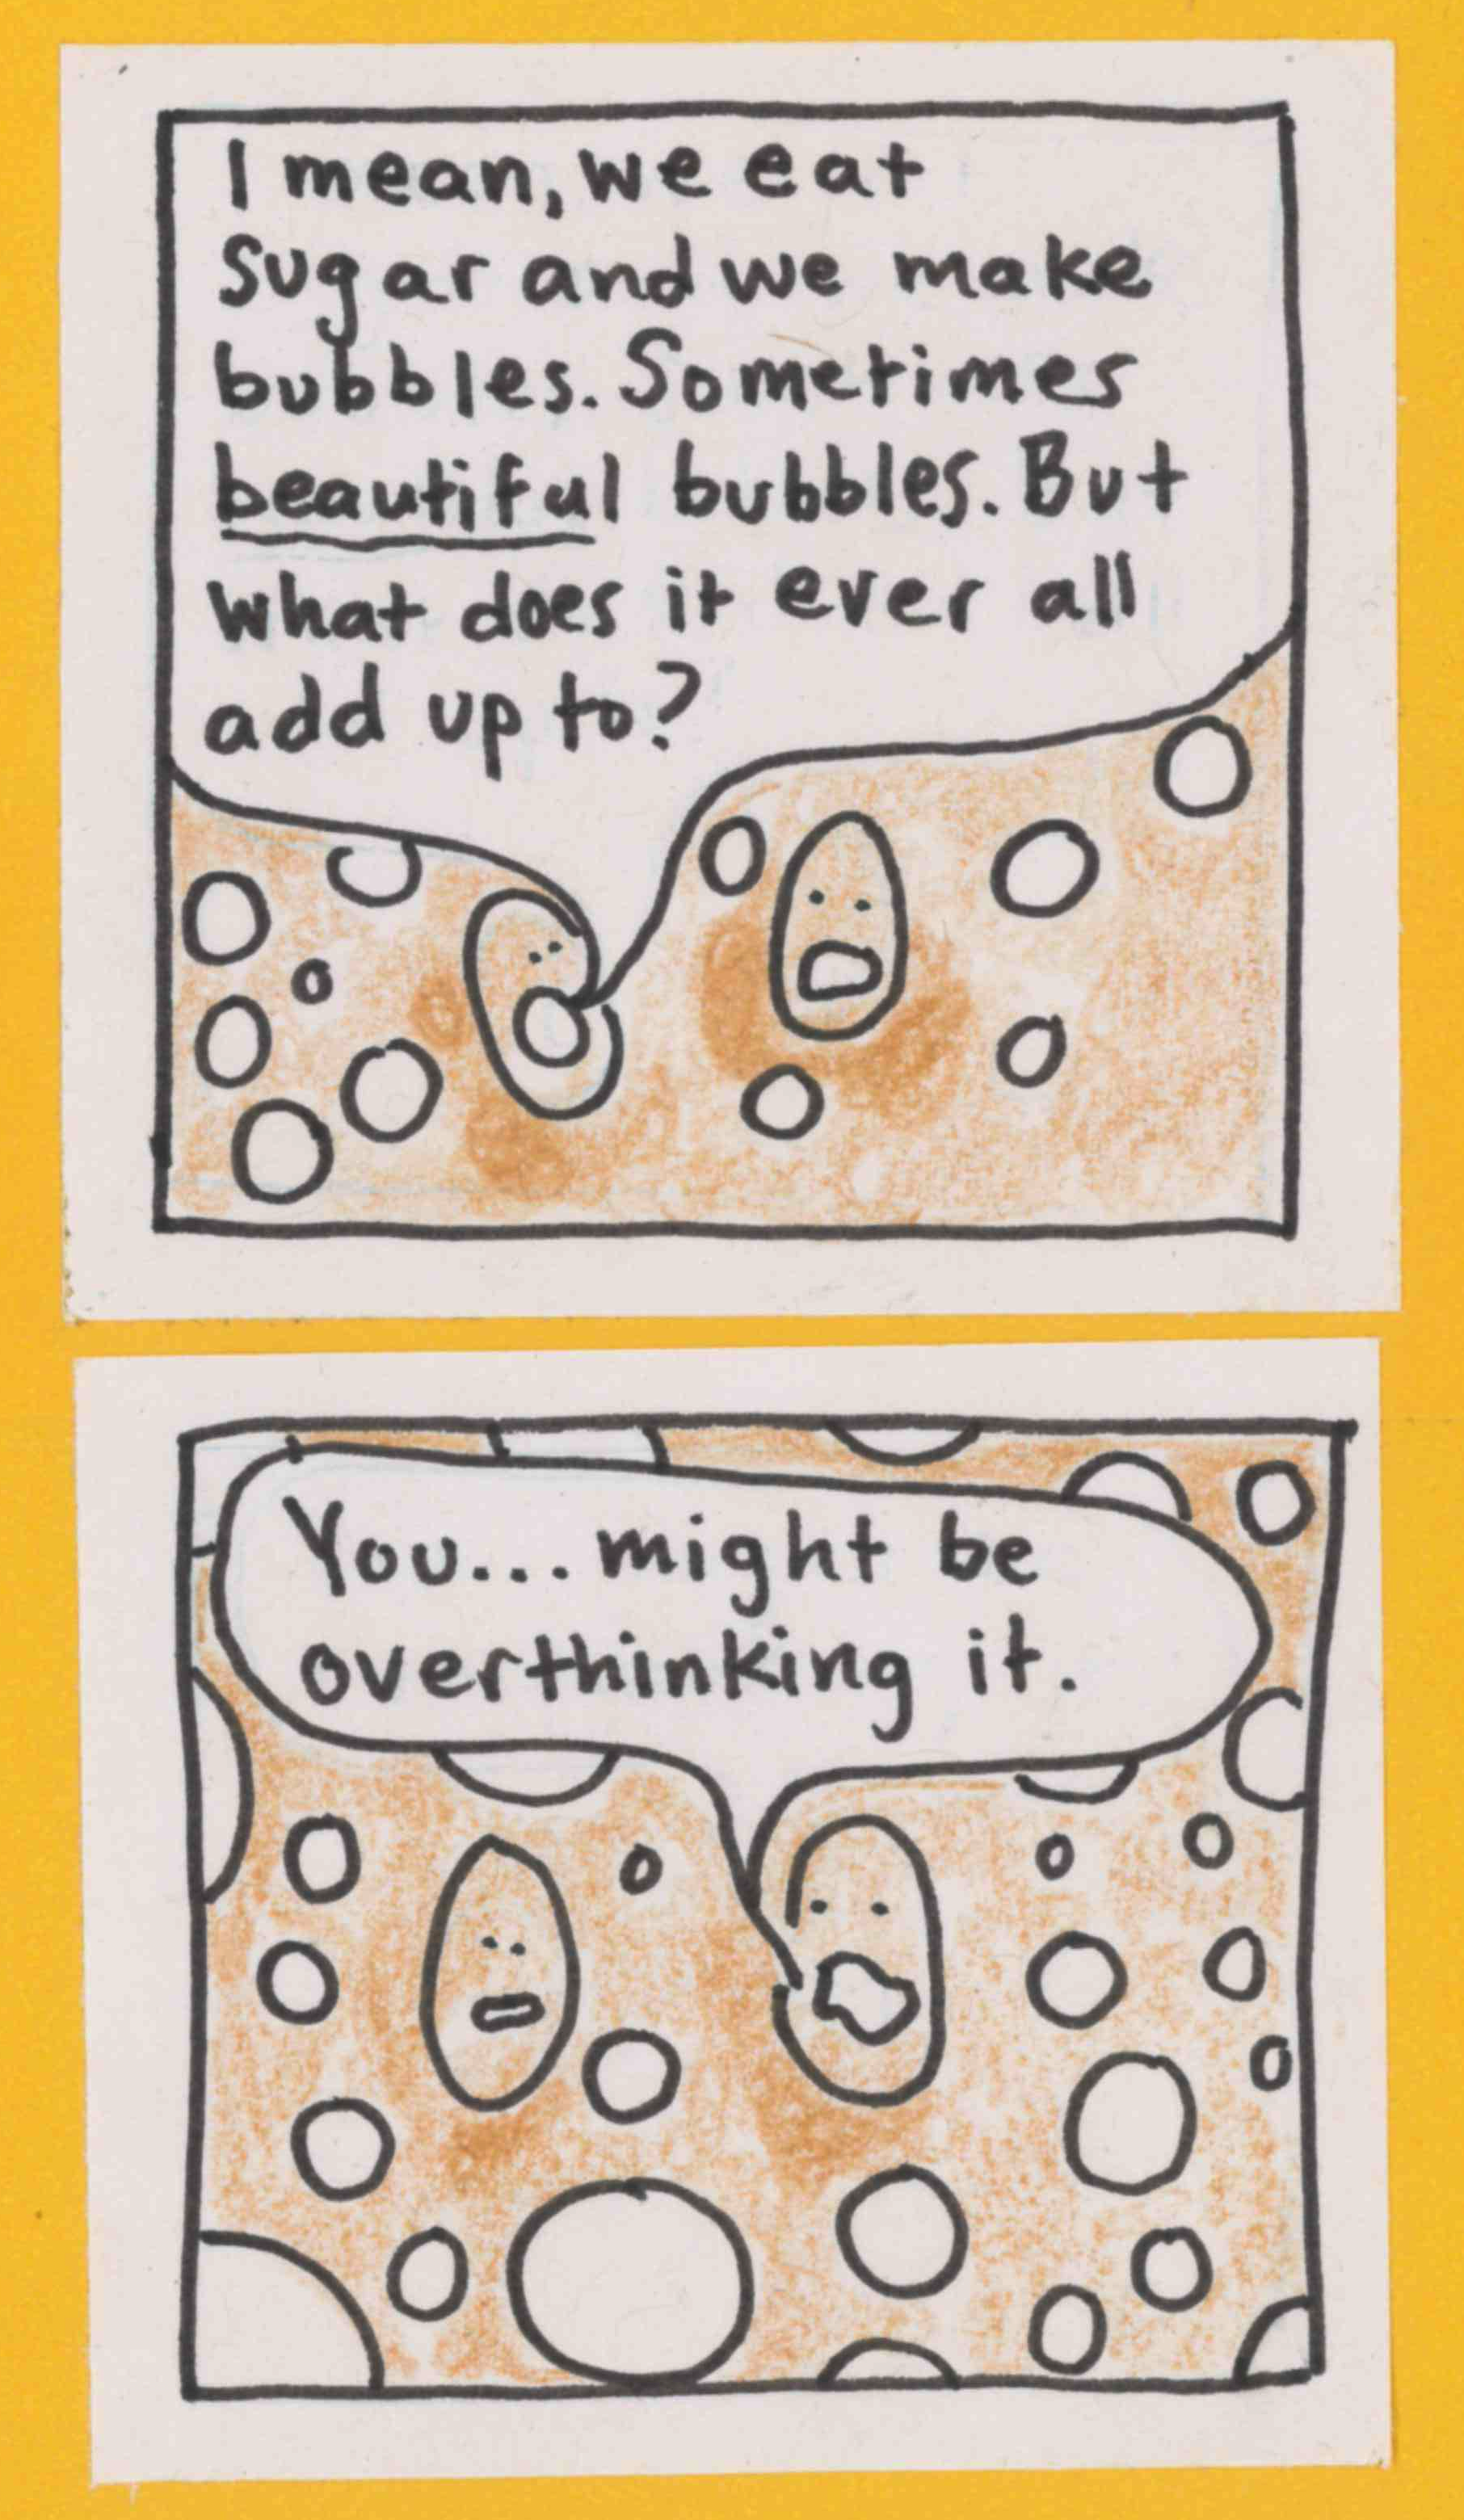 I mean, we eat
sugar and we make
bubbles. Sometimes
beautiful bubbles. But
what does it ever all
add up to?
You... might be
overthinking it.